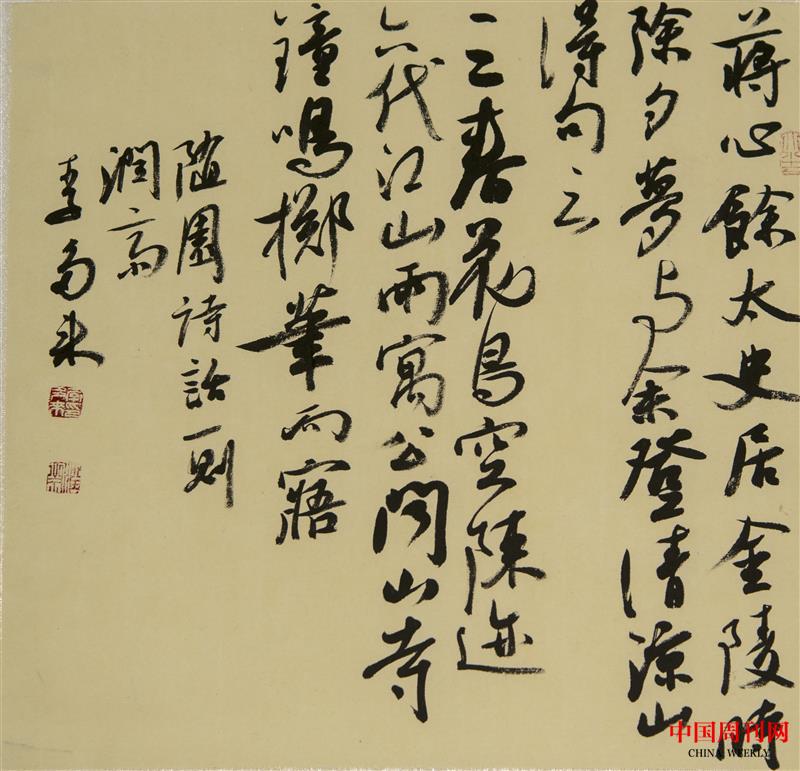 蔣心餘太史居金陵時
除夕夢与余登清涼山
得句云
三春花鳥空陳迹
六代江山兩寓公聞山寺
鐘鳴擲筆而寤
随園詩話一則
潤
李来
中国周刊网
CHINA WEEKLY